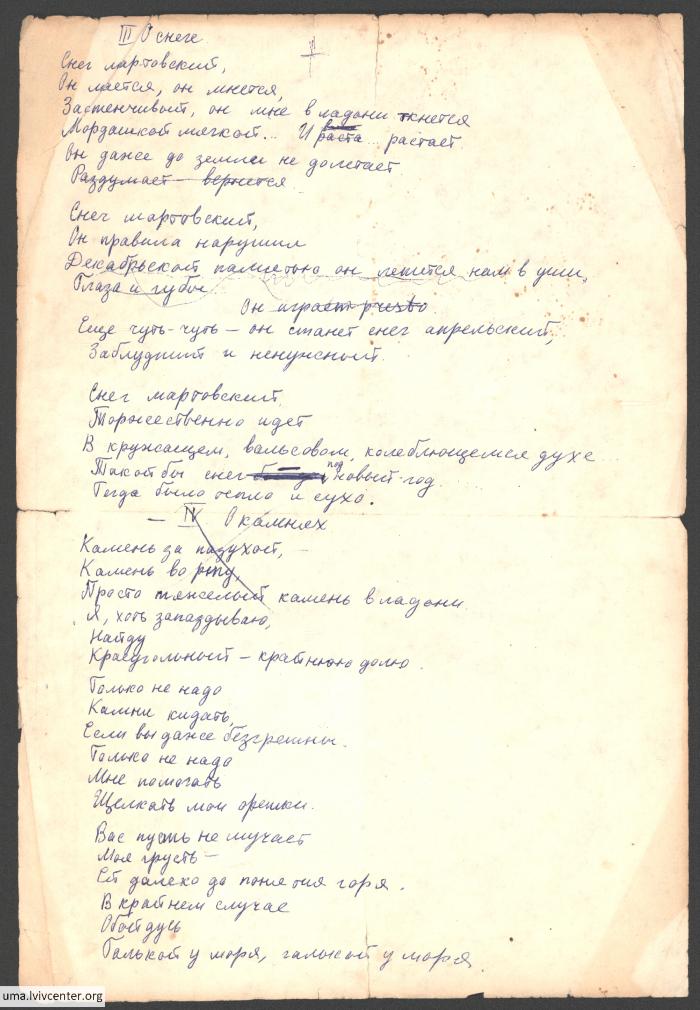 III О снеге
Снег мартовский,
Он мается, он мнется,
Застенчивый, он мне в ладони ткнется
Мордашкой мягкой... И раста... растает
Он даже до земли не долетает
Раздумает – вернется
Снег мартовский,
Он правила нарушил
Декабрьской памятью он лепится нам в уши,
Глаза и губы
Он играет
Еще чуть-чуть – он станет снег апрельский,
Заблудший и ненужный.
Снег мартовский
Торжественно идет
В кружащем, вальсовом, колеблющемся духе...
Такой бы снег под новый год
Тогда было тепло и сухо.
– IV О камнях
Камень за пазухой,
Камень во рту,
Просто тяжелый камень в ладони
Я, хоть запаздываю,
Найду
Краеугольный – крайнюю долю.
Только не надо
Камни кидать,
Если вы даже безгрешны.
Только не надо
Мне помогать
Щелкать мои орешки.
Вас пусть не мучает
Моя грусть –
Ей далеко до понятия горя.
В крайнем случае
Обойдусь
Галькой у моря, галькой у моря
uma.lvivcenter.org